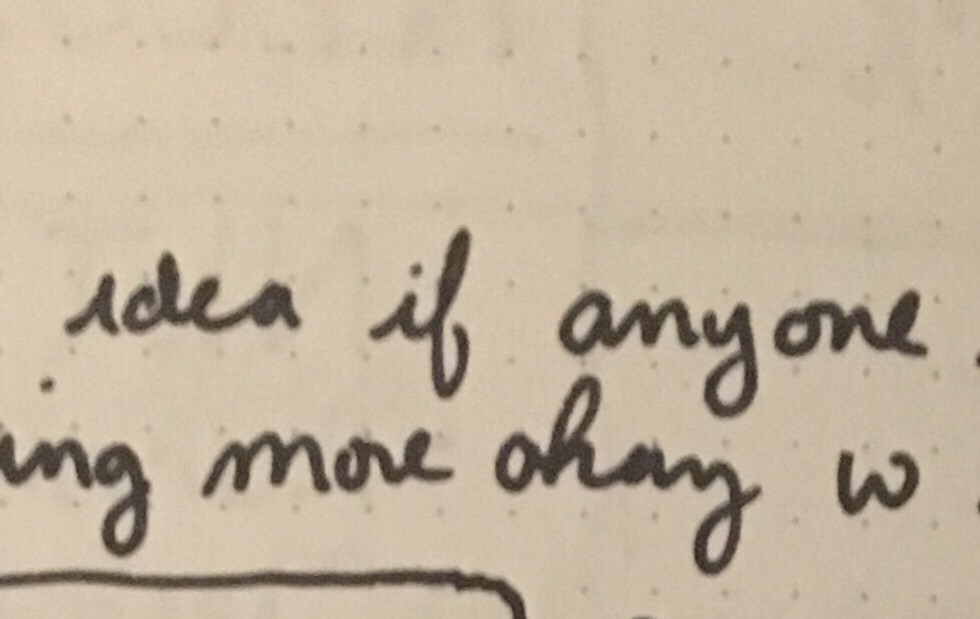 idea if anyone
ing more okay w